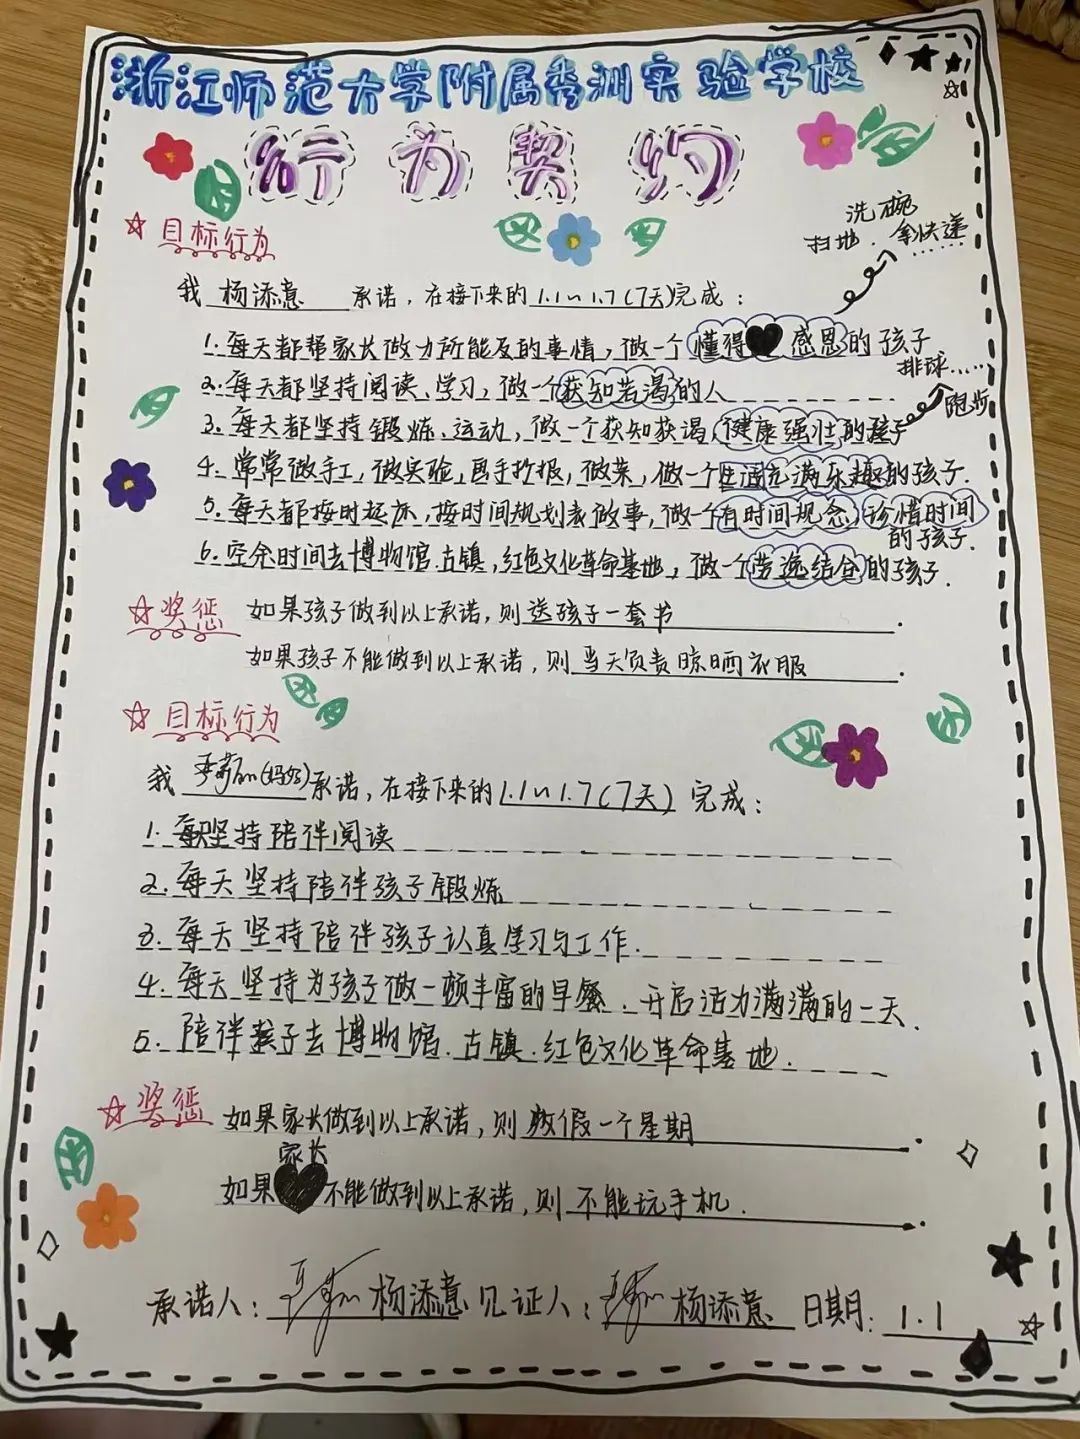 浙江师范大学附属秀洲实验学校
行为契约
洗碗
扫地、拿快递......
☆目标行为
我 杨添意 承诺,在接下来的 1.1~1.7(7天)完成:
1.每天都帮家长做力所能及的事情,做一个懂得感恩的孩子
排球......
2.每天都坚持阅读、学习,做一个获知若渴的人
跑步
3.每天都坚持锻炼、运动,做一个获知获渴,健康强壮的孩子
4.常常做手工,做实验,画手抄报,做菜,做一个生活充满乐趣的孩子.
5.每天都按时起床,按时间规划表做事,做一个有时间观念,珍惜时间
的孩子.
6.空余时间去博物馆.古镇,红色文化革命基地,做一个劳逸结合的孩子.
☆奖惩 如果孩子做到以上承诺,则送孩子一套书.
如果孩子不能做到以上承诺,则 当天负责晾晒衣服.
☆目标行为
我 (妈妈)承诺,在接下来的1.1~1.7(7天) 完成:
1.每坚持陪伴阅读
2.每天坚持陪伴孩子锻炼
3.每天坚持陪伴孩子认真学习与工作.
4.每天坚持为孩子做一顿丰富的早餐、开启活力满满的一天.
5.陪伴孩子去博物馆.古镇.红色文化革命基地.
☆奖惩 如果家长做到以上承诺,则 放假一个星期.
家长
如果不能做到以上承诺,则 不能玩手机.
承诺人: 杨添意 见证人: 杨添意 日期: 1.1